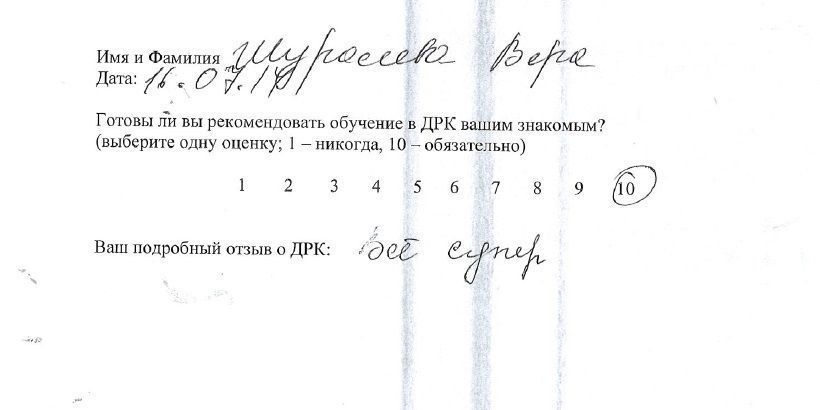 Имя и Фамилия Шуралева Вера
Дата: 16.07.14
Готовы ли вы рекомендовать обучение в ДРК вашим знакомым?
(выберите одну оценку; 1 – никогда, 10 – обязательно)
1 2 3 4 5 6 7 8 9 10
Ваш подробный отзыв о ДРК: Всё супер